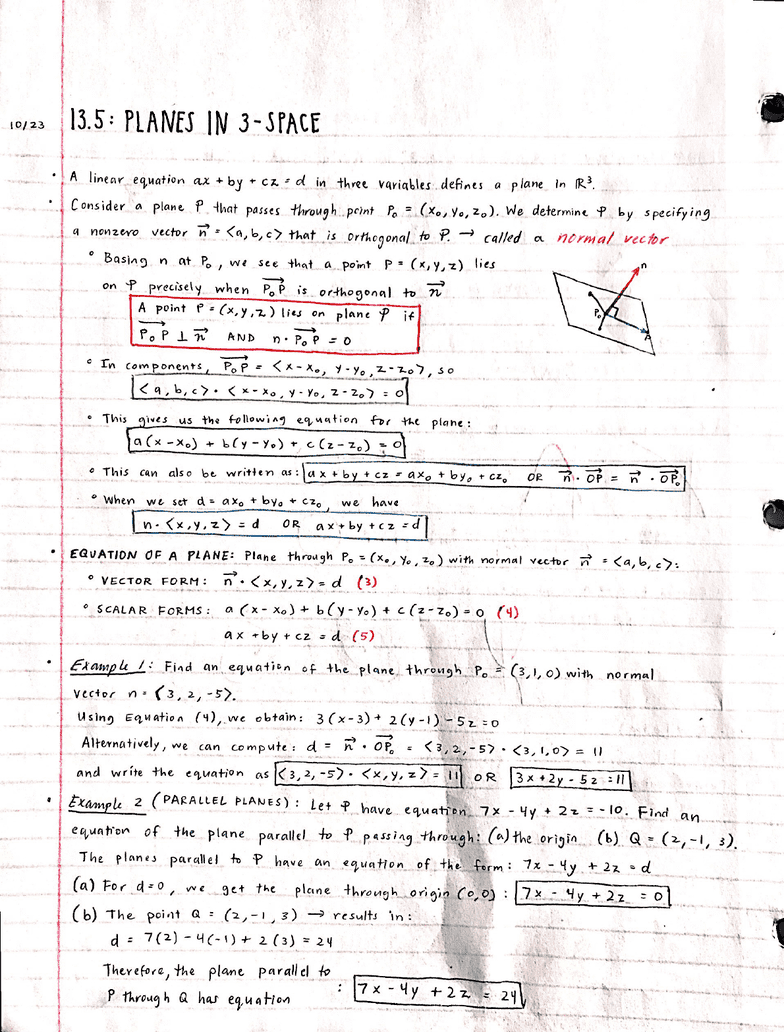 10/23 13.5: PLANES IN 3-SPACE
• A linear equation ax + by + cz = d in three variables defines a plane in ℝ³.
• Consider a plane P that passes through point P₀ = (x₀, y₀, z₀). We determine P by specifying
a nonzero vector n⃗ = <a, b, c> that is orthogonal to P. → called a normal vector
° Basing n at P₀, we see that a point P = (x, y, z) lies
on P precisely when P₀P⃗ is orthogonal to n⃗
A point P = (x, y, z) lies on plane P if
P₀P⃗ ⊥ n⃗ AND n · P₀P⃗ = 0
n
P₀
P
° In components, P₀P⃗ = <x-x₀, y-y₀, z-z₀>, so
<a, b, c> · <x-x₀, y-y₀, z-z₀> = 0
° This gives us the following equation for the plane:
a(x-x₀) + b(y-y₀) + c(z-z₀) = 0
° This can also be written as: ax + by + cz = ax₀ + by₀ + cz₀ OR n⃗ · OP⃗ = n⃗ · OP₀⃗
° When we set d = ax₀ + by₀ + cz₀, we have
n · <x, y, z> = d OR ax + by + cz = d
• EQUATION OF A PLANE: Plane through P₀ = (x₀, y₀, z₀) with normal vector n⃗ = <a, b, c>:
° VECTOR FORM: n⃗ · <x, y, z> = d (3)
° SCALAR FORMS: a(x-x₀) + b(y-y₀) + c(z-z₀) = 0 (4)
ax + by + cz = d (5)
• Example 1: Find an equation of the plane through P₀ = (3, 1, 0) with normal
vector n = <3, 2, -5>.
Using Equation (4), we obtain: 3(x-3) + 2(y-1) - 5z = 0
Alternatively, we can compute: d = n⃗ · OP₀⃗ = <3, 2, -5> · <3, 1, 0> = 11
and write the equation as <3, 2, -5> · <x, y, z> = 11 OR 3x + 2y - 5z = 11
• Example 2 (PARALLEL PLANES): Let P have equation 7x - 4y + 2z = -10. Find an
equation of the plane parallel to P passing through: (a) the origin (b) Q = (2, -1, 3).
The planes parallel to P have an equation of the form: 7x - 4y + 2z = d
(a) For d=0, we get the plane through origin (0,0): 7x - 4y + 2z = 0
(b) The point Q = (2, -1, 3) → results in:
d = 7(2) - 4(-1) + 2(3) = 24
Therefore, the plane parallel to
P through Q has equation : 7x - 4y + 2z = 24